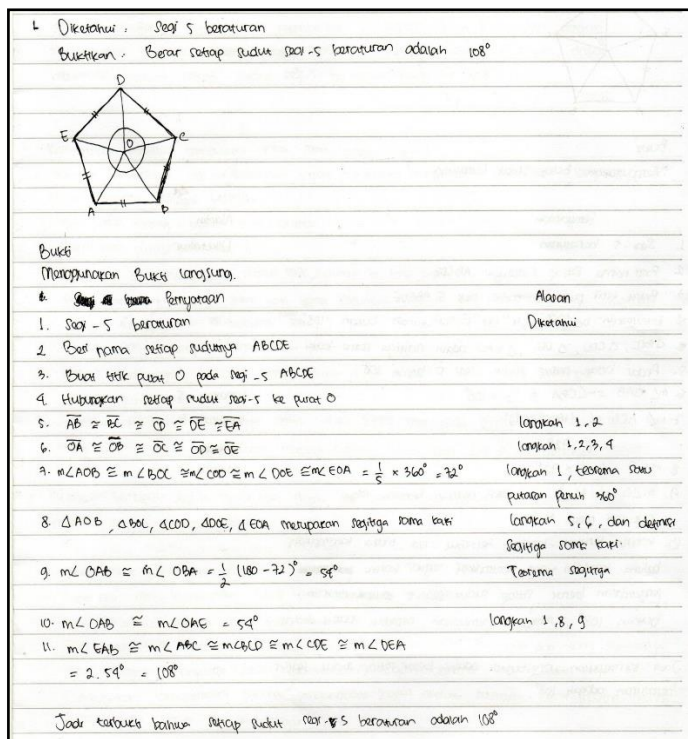 1. Diketahui : segi 5 beraturan
Buktikan : Besar setiap sudut segi-5 beraturan adalah 108°
D
E
C
O
A
B
Bukti
Menggunakan Bukti langsung.
Pernyataan Alasan
1. Segi-5 beraturan Diketahui
2. Beri nama setiap sudutnya ABCDE
3. Buat titik pusat O pada segi-5 ABCDE
4. Hubungkan setiap sudut segi-5 ke pusat O
5. AB ≅ BC ≅ CD ≅ DE ≅ EA langkah 1, 2
6. OA ≅ OB ≅ OC ≅ OD ≅ OE langkah 1,2,3,4
7. m∠AOB ≅ m∠BOC ≅ m∠COD ≅ m∠DOE ≅ m∠EOA = 1/5 × 360° = 72° langkah 1, teorema satu
putaran penuh 360°
8. △AOB, △BOC, △COD, △DOE, △EOA merupakan segitiga sama kaki langkah 5, 6, dan definisi
segitiga sama kaki.
9. m∠OAB ≅ m∠OBA = 1/2 (180 - 72)° = 54° Teorema segitiga
10. m∠OAB ≅ m∠OAE = 54° langkah 1, 8, 9
11. m∠EAB ≅ m∠ABC ≅ m∠BCD ≅ m∠CDE ≅ m∠DEA
= 2 . 54° = 108°
Jadi terbukti bahwa setiap sudut segi-5 beraturan adalah 108°